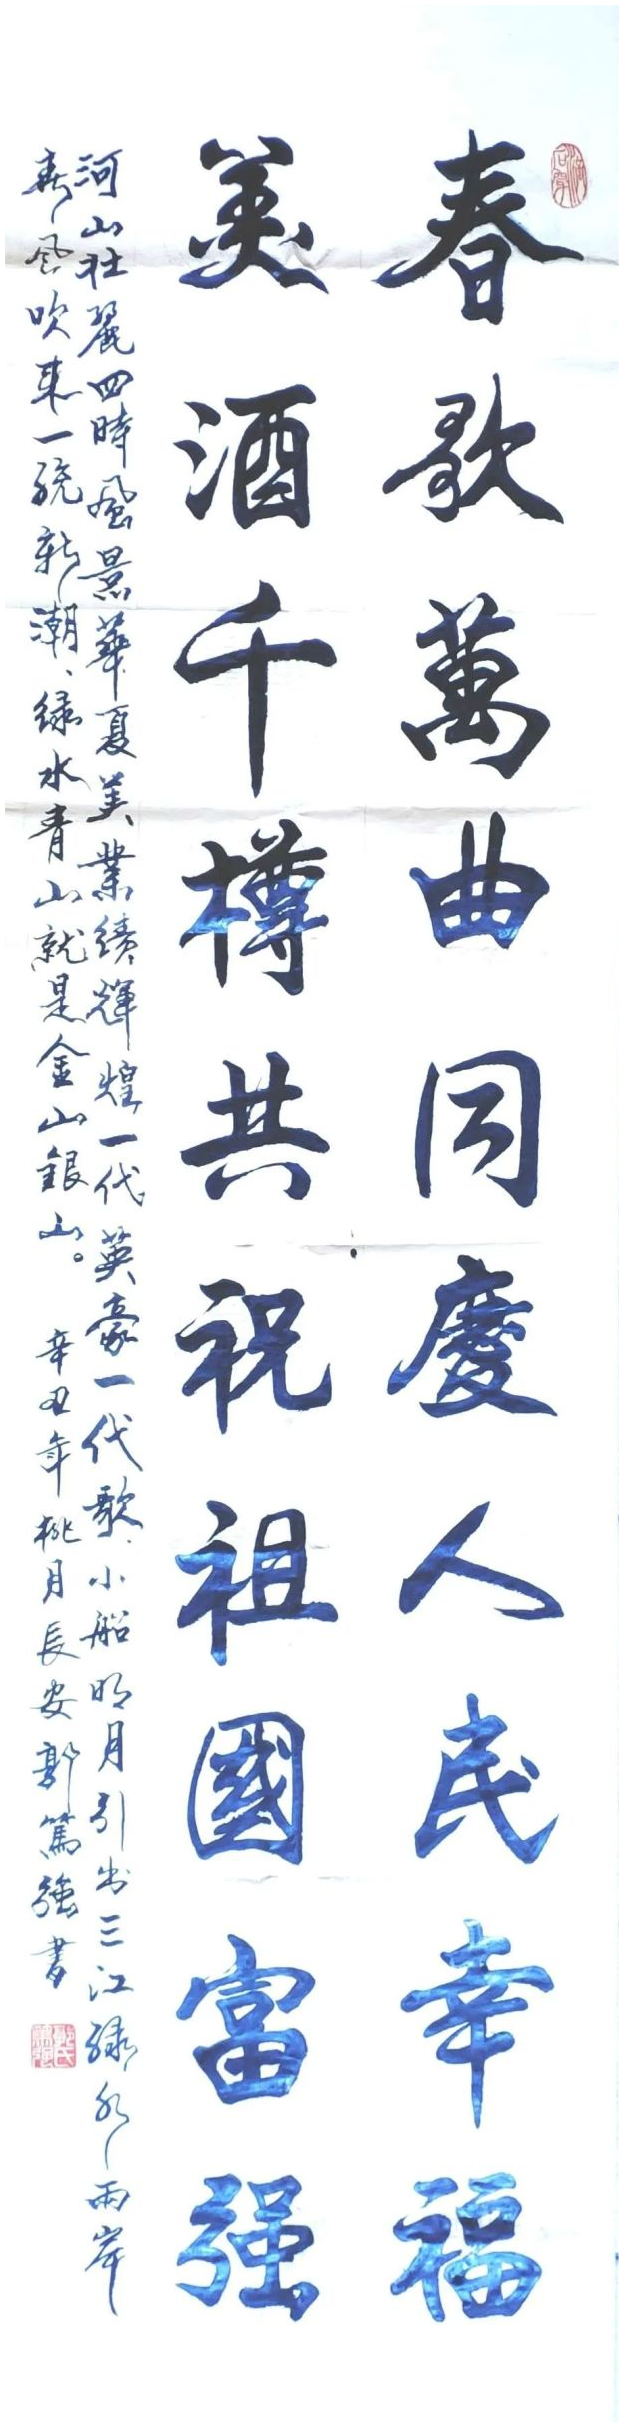 春歌萬曲同慶人民幸福
美酒千樽共祝祖國富强
河山壯麗四時風景華夏美業績輝煌一代英豪一代歌、小船明月引出三江綠水兩岸
春風吹來一統新潮、綠水青山就是金山銀山。 辛丑年桃月長安郭篤强書